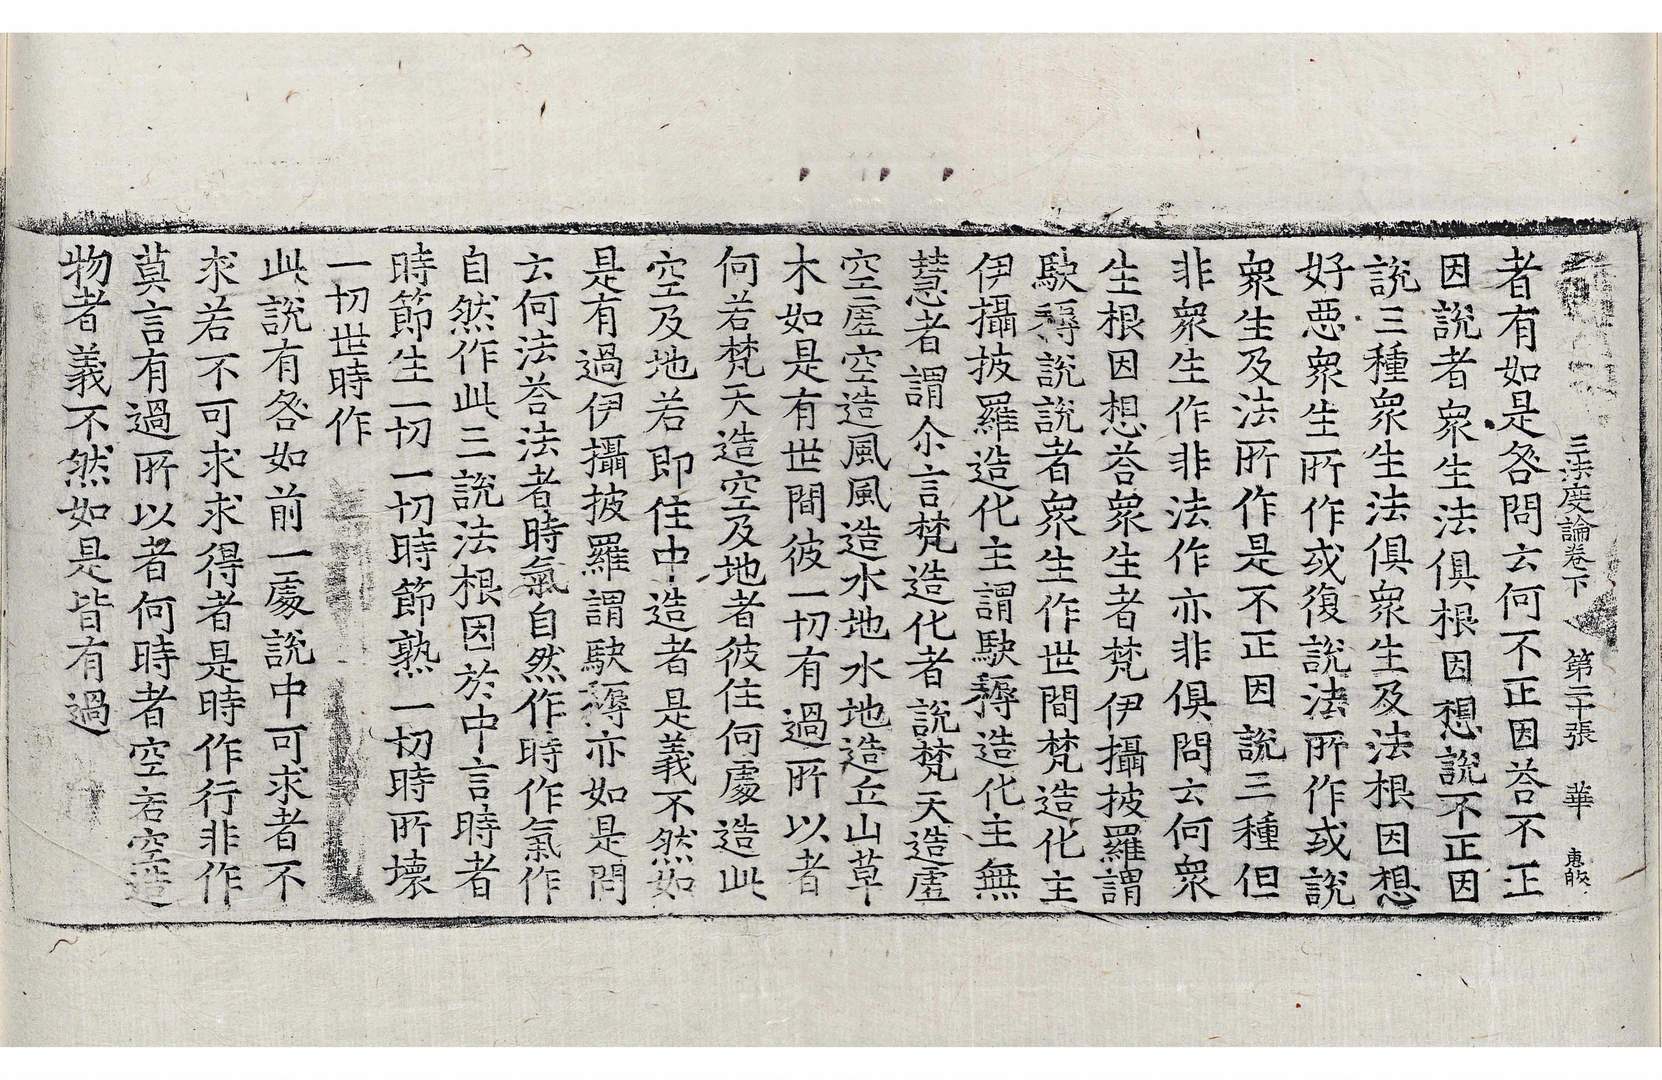 三法度論卷下 第二十張 華 惠皎
者有如是咎問云何不正因荅不正
因說者衆生法俱根因想說不正因
說三種衆生法俱衆生及法根因想
好惡衆生所作或復說法所作或說
衆生及法所作是不正因說三種但
非衆生作非法作亦非俱問云何衆
生根因想荅衆生者梵伊攝披羅謂
駃䅵說說者衆生作世間梵造化主
伊攝披羅造化主謂駃䅵造化主無
慧者謂尒言梵造化者說梵天造虛
空虛空造風風造水地水地造丘山草
木如是有世間彼一切有過所以者
何若梵天造空及地者彼住何處造此
空及地若即住中造者是義不然如
是有過伊攝披羅謂駃䅵亦如是問
云何法荅法者時氣自然作時作氣作
自然作此三說法根因於中言時者
時節生一切一切時節熟一切時所壞
一切世時作
此說有咎如前一處說中可求者不
求若不可求求得者是時作行非作
莫言有過所以者何時者空若空造
物者義不然如是皆有過